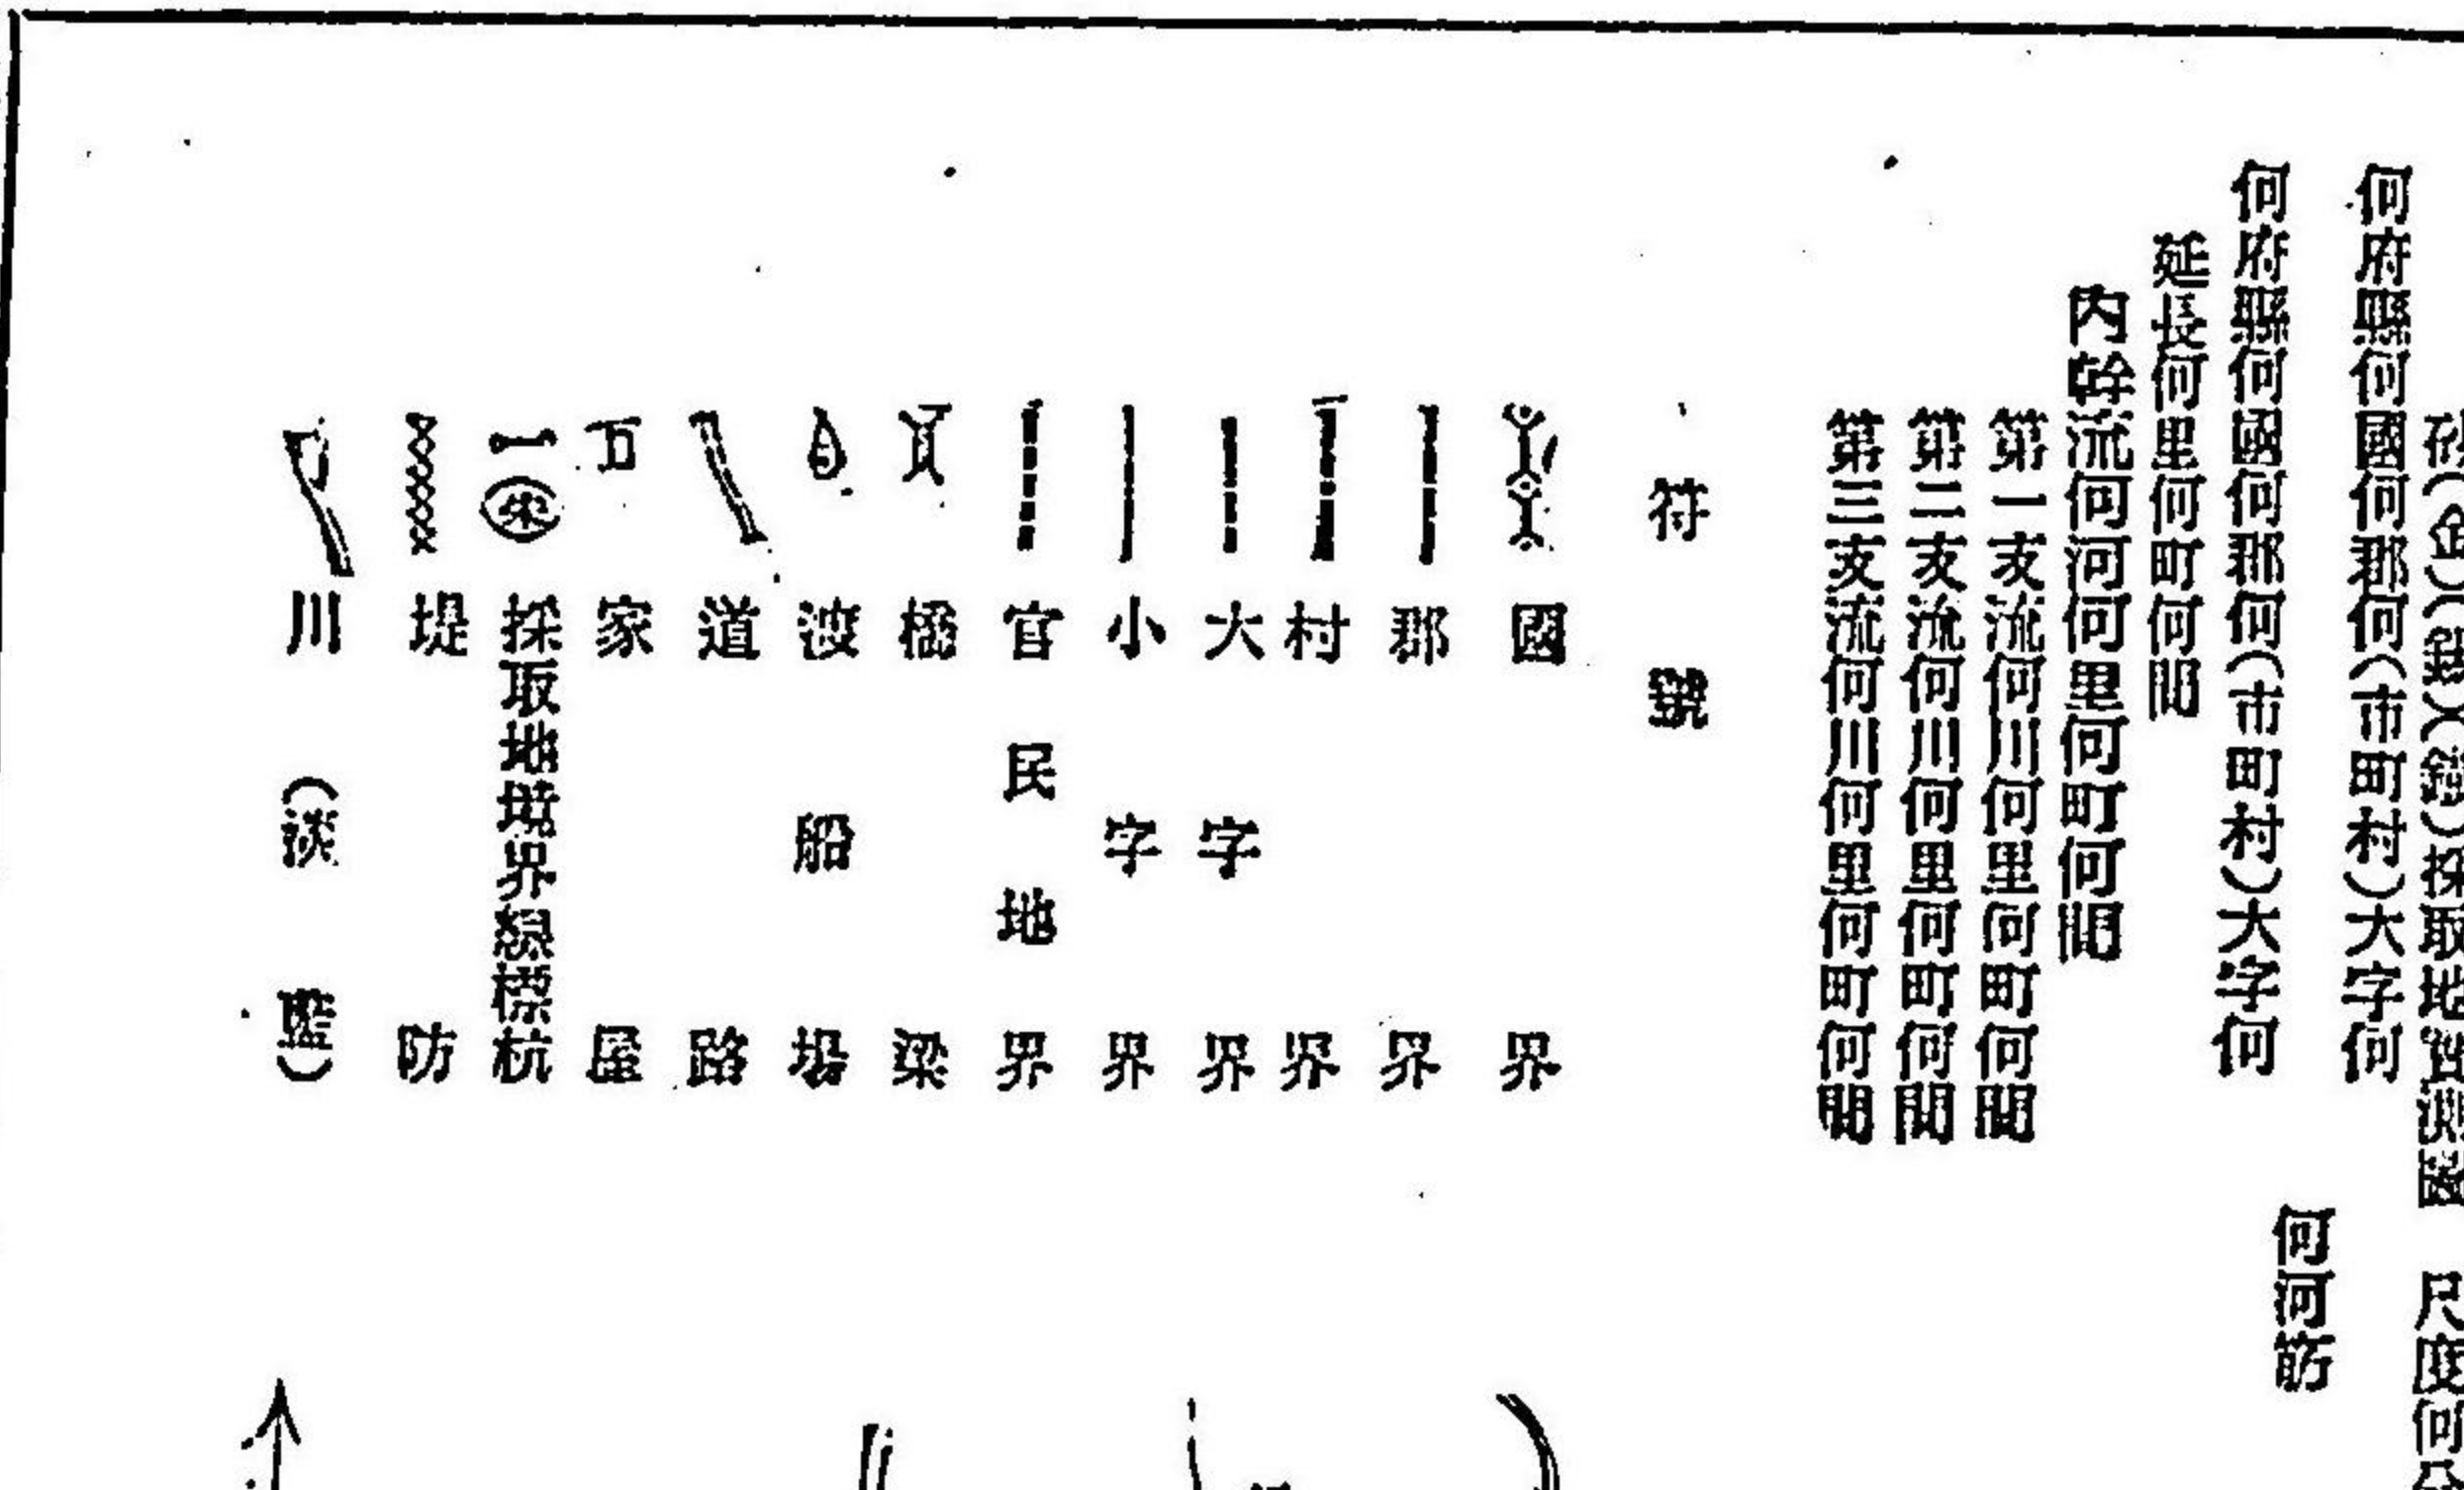 砂(金)(錫)(鐵)採取地實測圖 尺度何分
何府縣何國何郡何(市町村)大字何
何府縣何國何郡何(市町村)大字何
何河筋
延長何里何町何間
內幹流何河何里何町何間
第一支流何川何里何町何間
第二支流何川何里何町何間
第三支流何川何里何町何間
符號
國界
郡界
村界
大字界
小字界
官民地界
橋梁
渡船場
道路
家屋
採取地境界線標杭
堤防
川(淡藍)